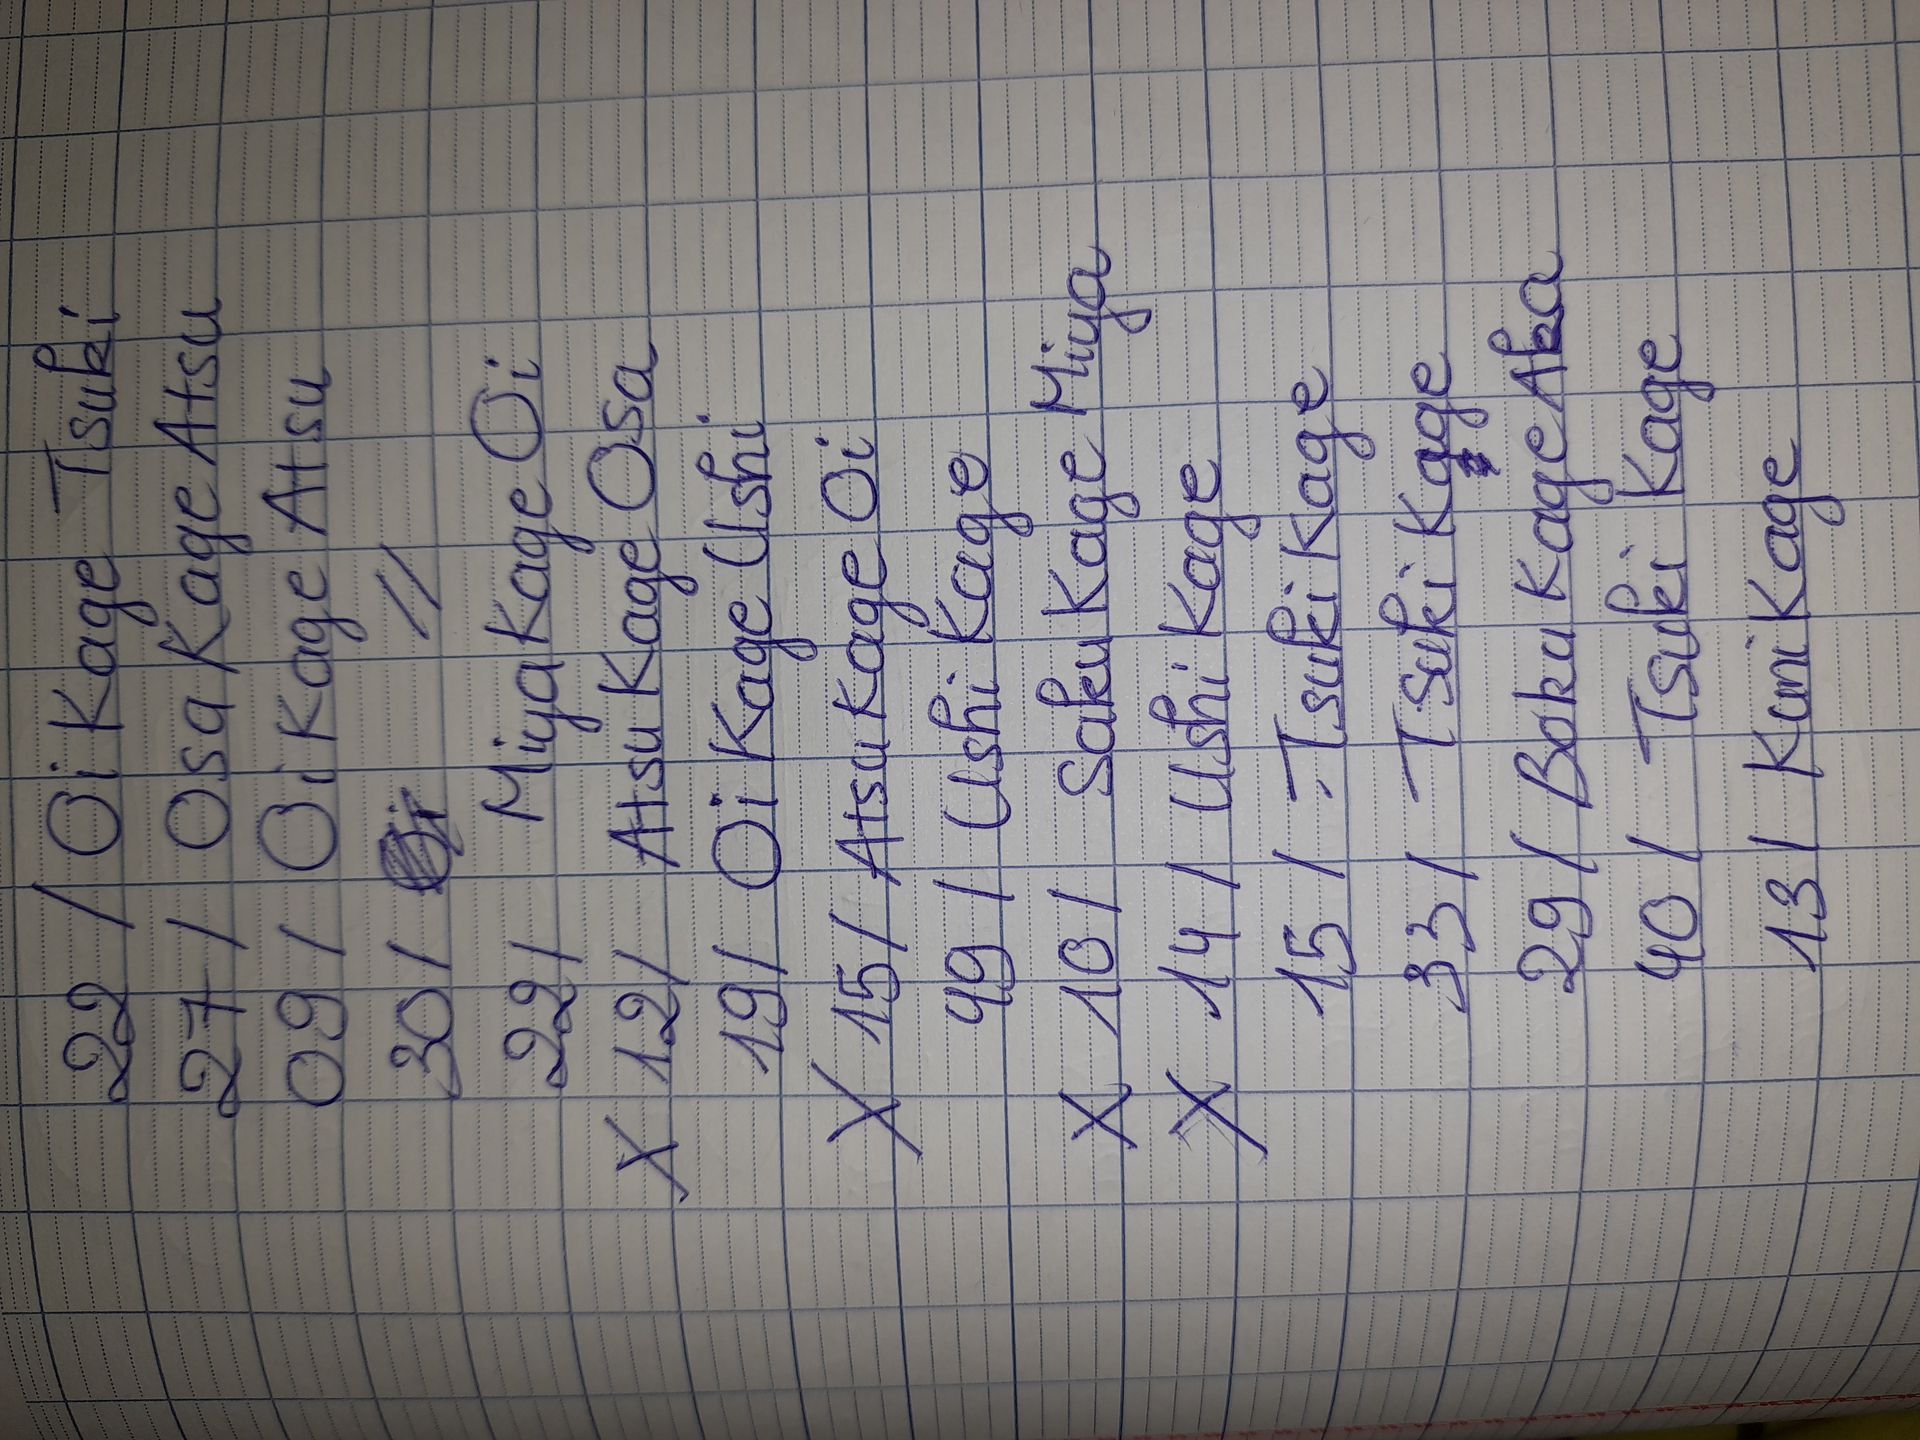 22 / Oi Kage Tsuki
27 / Osa Kage Atsu
09 / Oi Kage Atsu
30 / //
22 / Miya Kage Oi
X 12 / Atsu Kage Osa
19 / Oi Kage Ushi
X 15 / Atsu Kage Oi
49 / Ushi Kage
X 10 / Saku Kage Miya
X 14 / Ushi Kage
15 / Tsuki Kage
33 / Tsuki Kage
29 / Boku Kage Aka
40 / Tsuki Kage
13 / Kuni Kage